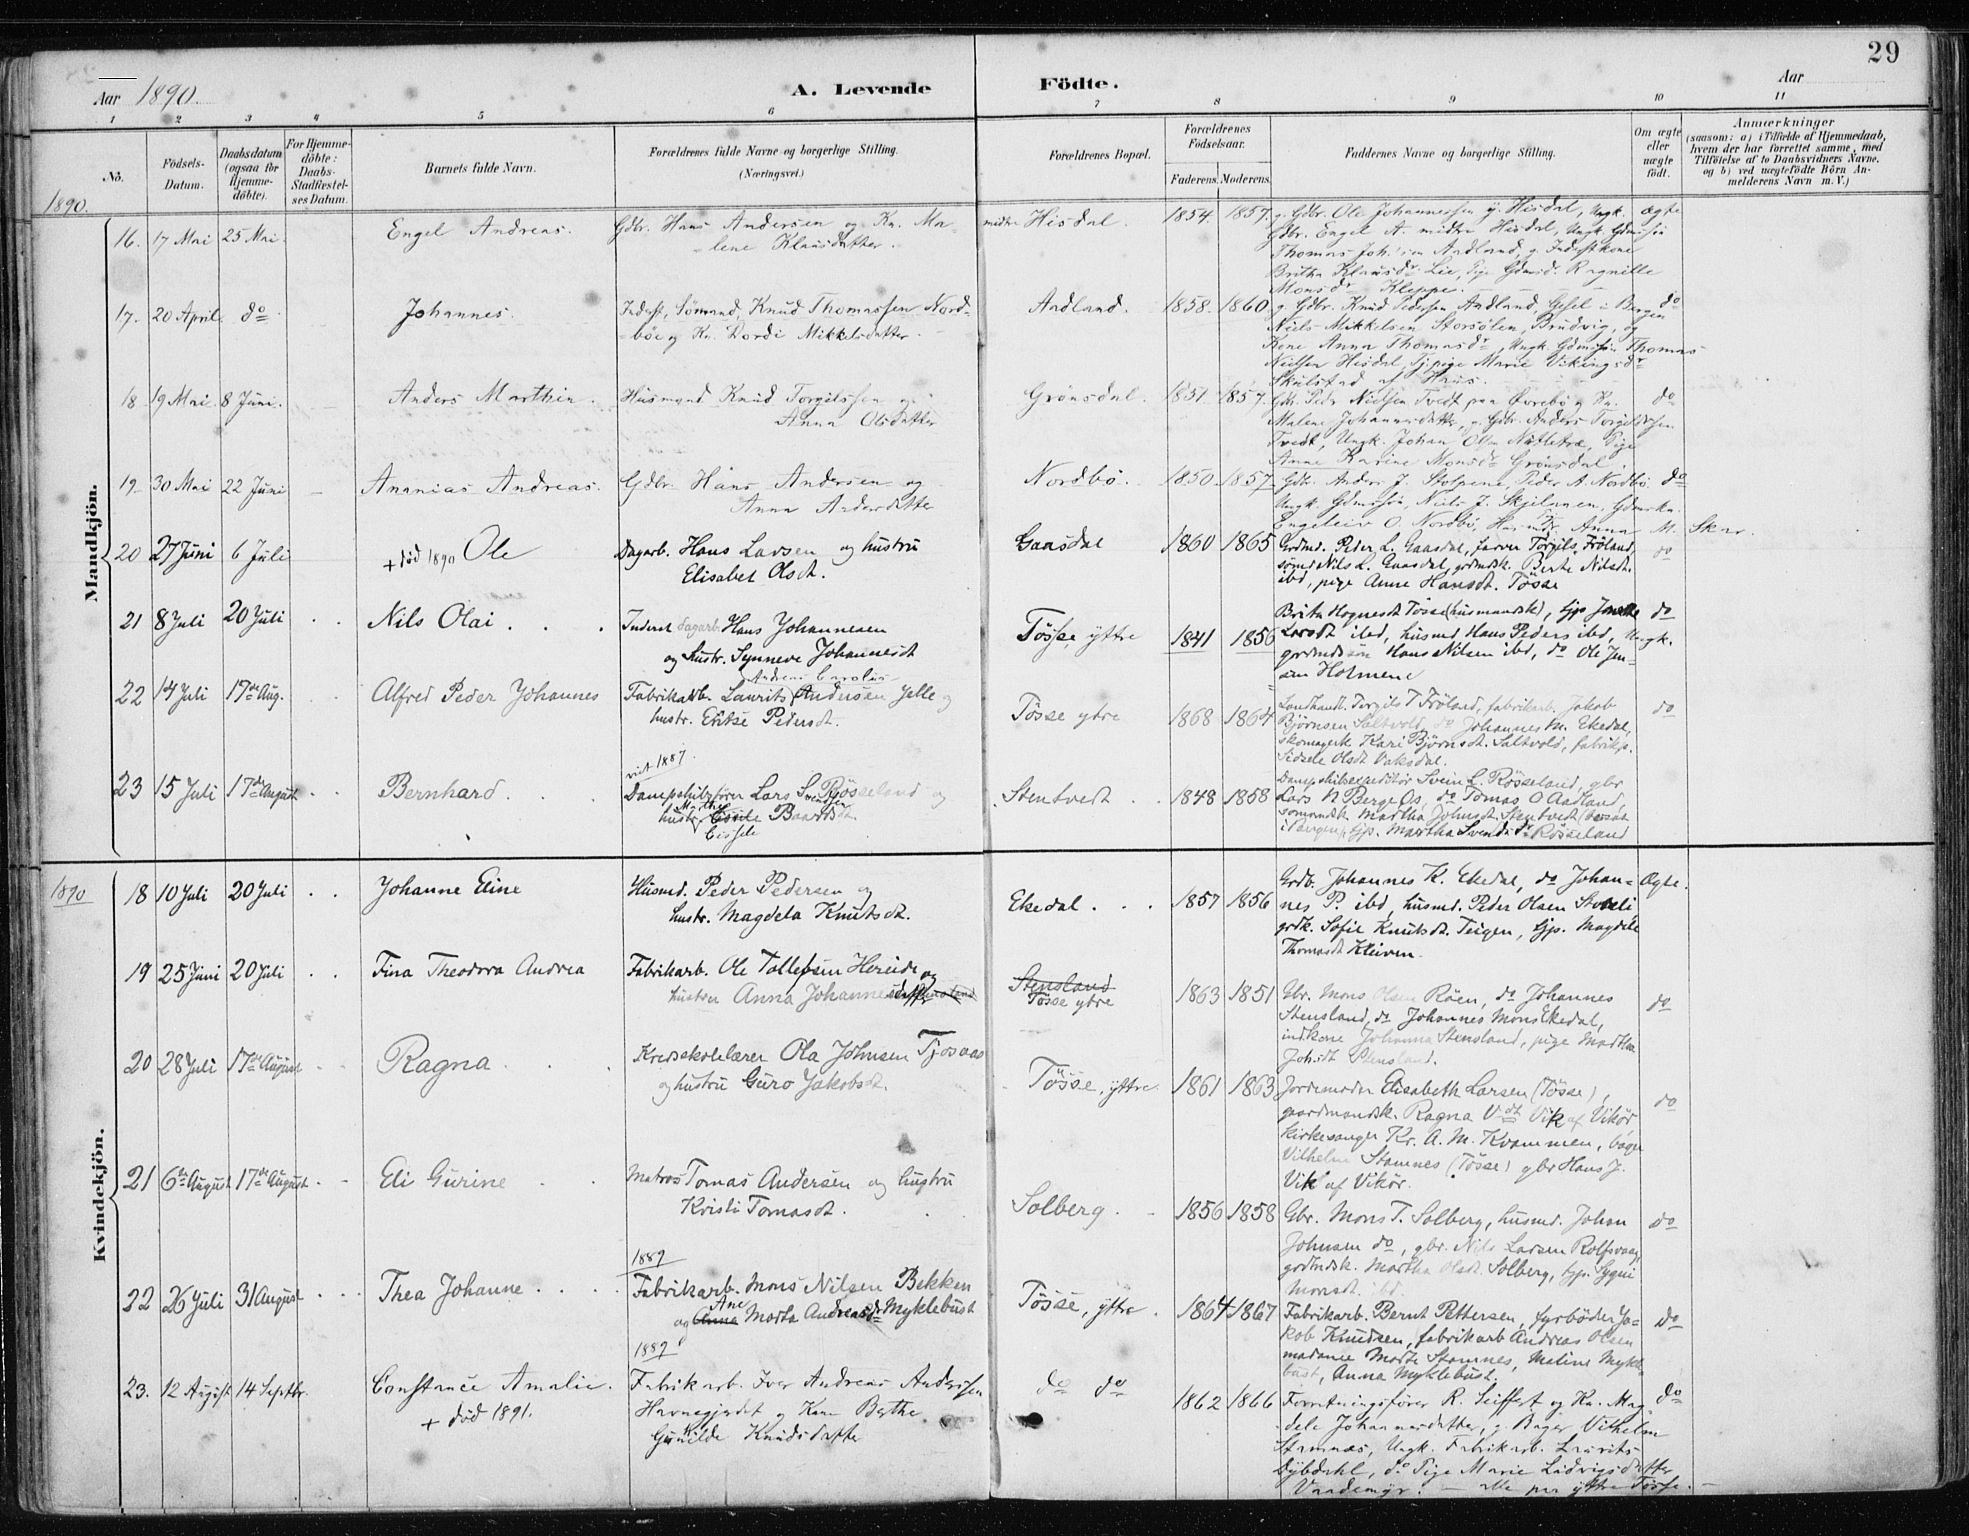 29
Aar 1890. A. Levende Födte. Aar
1 2 3 4 5 6 7 8 9 10 11
No.
Födsels-Datum.
Daabsdatum (ogsaa for Hjemmedöbte).
For Hjemmedöbte: Daabs-Stadfæstelses Datum.
Barnets fulde Navn.
Forældrenes fulde Navne og borgerlige Stilling.
(Næringsvei.)
Forældrenes Bopæl.
Forældrenes Födselsaar.
Faderens. Moderens.
Faddernes Navne og borgerlige Stilling.
Om ægte eller uægte födt.
Anmærkninger
(saasom: a) i Tilfælde af Hjemmedaab,
hvem der har forrettet samme, med
Tilföielse af to Daabsvidners Navne.
og b) ved uægtefödte Börn An-
melderens Navn m. V.)
1890.
Mandkjön.
16. 17 Mai 25 Mai. Engel Andreas. Gdbr. Hans Andersen og Kn. Ma-
lene Klausdatter.
midtre Hisdal. 1854. 1857. g. Gdbr. Ole Johannessen y. Hisdal, Ungk. ægte
Gdbr. Engel A. midtre Hisdal, Ungk Gdmssön
Thomas Joh.sen Aadland, g. Inderstkone
Britha Klausdr. Lie, Pige Gdmsd. Ragnille
Monsdr. Kleppe.
17. 20 April do Johannes. Inderst, Sömand, Knud Thomassen Nord-
böe og Kn. Dordi Mikkelsdatter.
Aadland. 1858. 1860. g. Gdbr. Knud Pedersen Aadland, Gesel i Bergen do
Niels Mikkelsen Storsölen, Brudvig, og
Kone Anna Thomasdr, Ungk. Gdmssön Thomas
Nielsen Hisdal, Tj.pige Marie Vikingsdr
Skulstad af Haus.
18 19 Mai 8 Juni. Anders Marthin. Husmand Knud Torgilssen og
Anna Olsdatter
Grönsdal. 1851. 1857. Gdbr. Peder Nielsen Tvedt paa Övrebö og Kn. do
Malene Johannesdatter, g. Gdbr. Anders Torgildssen
Tvedt, Ungk. Johan Olsen Nätletræ, Pige
Anne Karine Monsdr Grönsdal.
19. 30 Mai 22 Juni Ananias Andreas. Gdbr. Hans Andersen og
Anna Andersdatter
Nordbö. 1850. 1857. Gdbr. Anders J. Stolpene, Peder A. Nordbö do
Ungk. Gdmssön, Niels J. Skjelanen, Gdmsko.
Engeleiv O. Nordbö, Anna M. Skar.
20 27 Juni 6 Juli + död 1890 Ole Dagarb. Hans Larsen og hustru
Elisabet Olsdt.
Gaasdal 1860 1865 Grdmd. Peder L. Gaasdal, farver Torgils Fröland, do
sömd Nils L. Gaasdal, grdmdsk. Berte Nilsdt.
ibd, pige Anne Hansdt. Tösse
21 8 Juli 20 Juli Nils Olai Inderst dagarb. Hans Johannesen
og hustr. Synneve Johannesdt
Tösse, yttre 1841 1856 Brita Hognesdt Tösse (husmandsk), tjp Jonette do
Larsdt ibd, husmd. Hans Peders ibd, Ungk.
grdmdssön Hans Nilsen ibd, do Ole Jen-
sen Holmene
22 14 Juli 17de Aug. Alfred Peder Johannes Andreas Carolius
Fabrikarb. Laurits Andersen Jelle og
hustr. Eritse Pedersdt.
Tösse ytre 1868 1864 Landhandl. Torgils T Fröland, fabrikarb. Jakob do
Björnsen Saltvold, do Johannes M. Ekedal,
skomagerk Kari Björnsdt. Saltvold, fabrikp.
Sidsele Olsdt Vaksdal.
23 15 Juli 17de August Bernhard viet 1887.
Dampskibsförer Lars Svendsen Rösseland og
hustr. Martha Cissele Baardsdt.
Cissele
Stentvedt 1848 1858 Dampskibsexpeditör Svein L. Rösseland, gbr
Lars N Berge Os, do Tomas O Aadland,
sömandsk Martha Johnsdt. Stentvedt (bosat
i Bergen), tjp. Martha Svendsdr Rösseland
1890
Kvindekjön.
18 10 Juli 20 Juli Johanne Eline Husmd. Peder Pedersen og
hustr. Magdela Knutsdt.
Ekedal 1857 1856 Grdb. Johannes K. Ekedal, do Johan- Ægte.
nes P. ibd, husmd. Peder Olsen Storeli
grdk. Sofie Knutsdt. Teigen, tjp. Magdele
Thomasdt Kleiven.
19 25 Juni 20 Juli Tina Theodora Andrea Fabrikarb. Ole Tollefsen Hereide og
hustru Anna Johannesdatter Stensland
Stensland
Tösse ytre 1863 1851 Gbr. Mons Olsen Röen, do Johannes do
Stensland, do Johannes Mons Ekedal,
indkone Johanna Stensland, pige Martha
Johsdt Stensland.
20 28 Juli 17de August Ragna Kredsskolelærer Ola Johnsen Tjosaas
og hustru Guro Jakobsdt.
Tösse, yttre 1861 1863 Jordemoder Elisabeth Larsen (Tösse), do
gaardmandsk. Ragna V.dt Vik af Vikör
kirkesanger Kr. A. M. Kvammen, bager
Vilhelm Stamnes (Tösse) gbr Hans J.
Vik af Vikör.
21 6te August 17de August Eli Gurine Matros Tomas Andersen og hustru
Kristi Tomasdt.
Solberg. 1856 1858 Gbr. Mons T. Solberg, husmd. Johan do
Johnsen do, gbr. Nils Larsen Rolfsvaag,
grdmdsk. Martha Olsdt. Solberg, tjp. Sygni
Monsdt. ibd.
22 26 Juli 31 August Thea Johanne 1889
Fabrikarb. Mons Nilsen Bekken
og Anna Ane Marta Andreasdr Myklebust
Tösse, yttre. 1864 1867 Fabrikarb. Bernt Pettersen, fyrböder Ja- do
kob Knudsen, fabrikarb Andreas Olsen
madame Marte Stamnes, Maline Mykle-
bust, Anna Myklebust.
23. 12 August 14 Septbr. Constance Amalie.
+ död 1891.
1889
Fabrikarb. Iver Andreas Andersen
Havnegjerdet og Kone Berthe
Gunilde Knudsdatter
do do 1862 1866 Forretningsförer R. Seiffert og Kn. Mag- do
dele Johannesdatter, g. Bager Vilhelm
Stamnæs, Ungk. Fabrikarb. Laurits
Dybdahl, do Pige Marie Ludvigsdatter
Vaademyr. — alle paa yttre Tösse. —